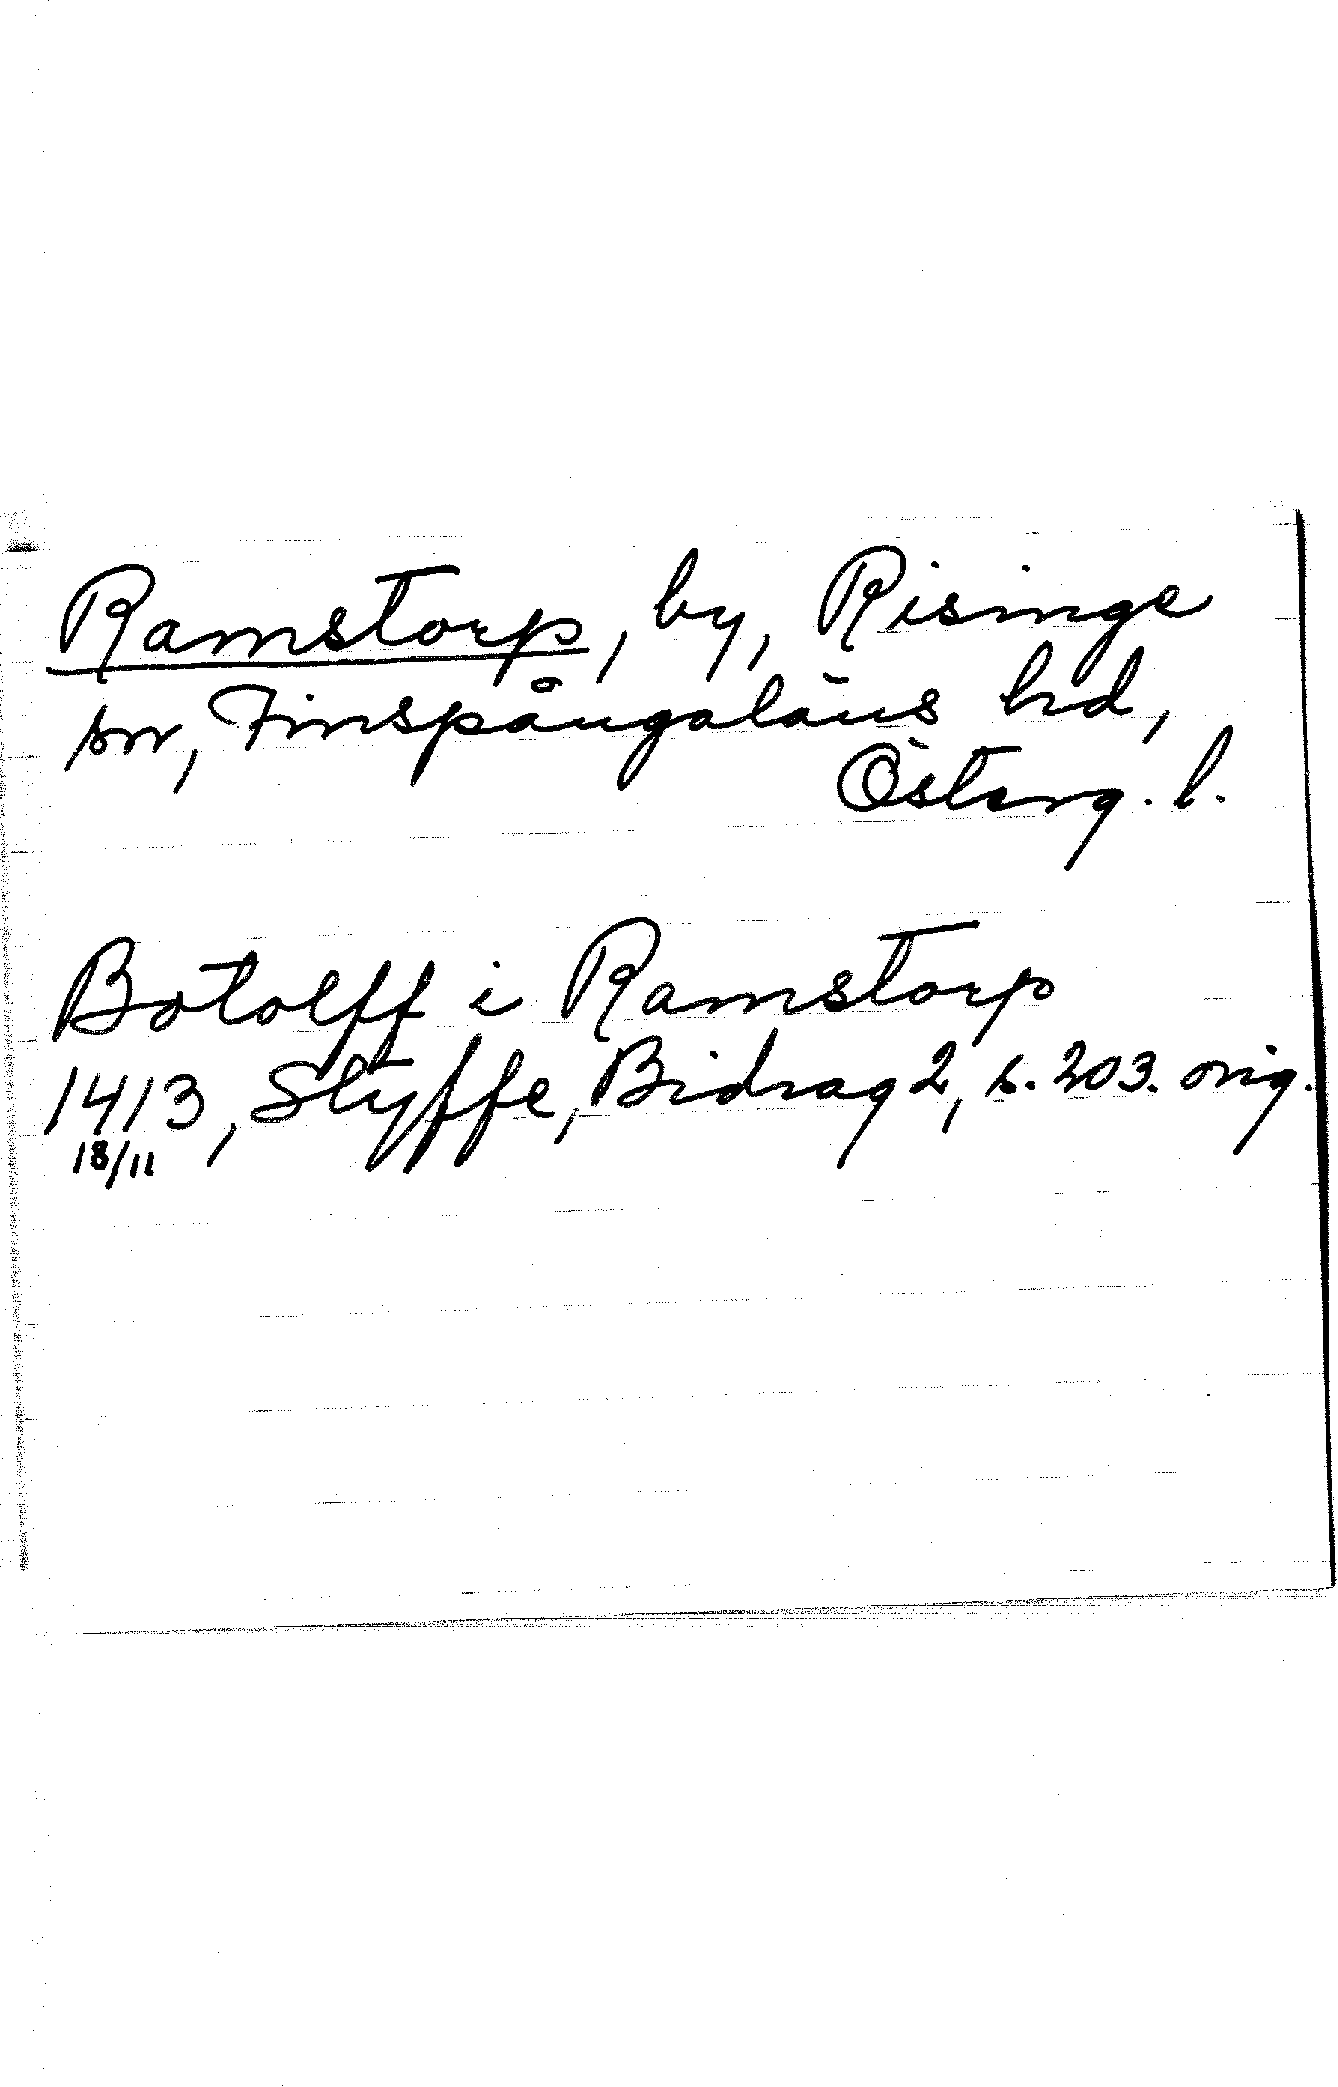 Ramstorp, by, Risinge
sn, Finspångaläns hd,
Österg. l.
Botolff i Ramstorp
1413, Styffe, Bidrag 2, s. 203. orig.
18/11